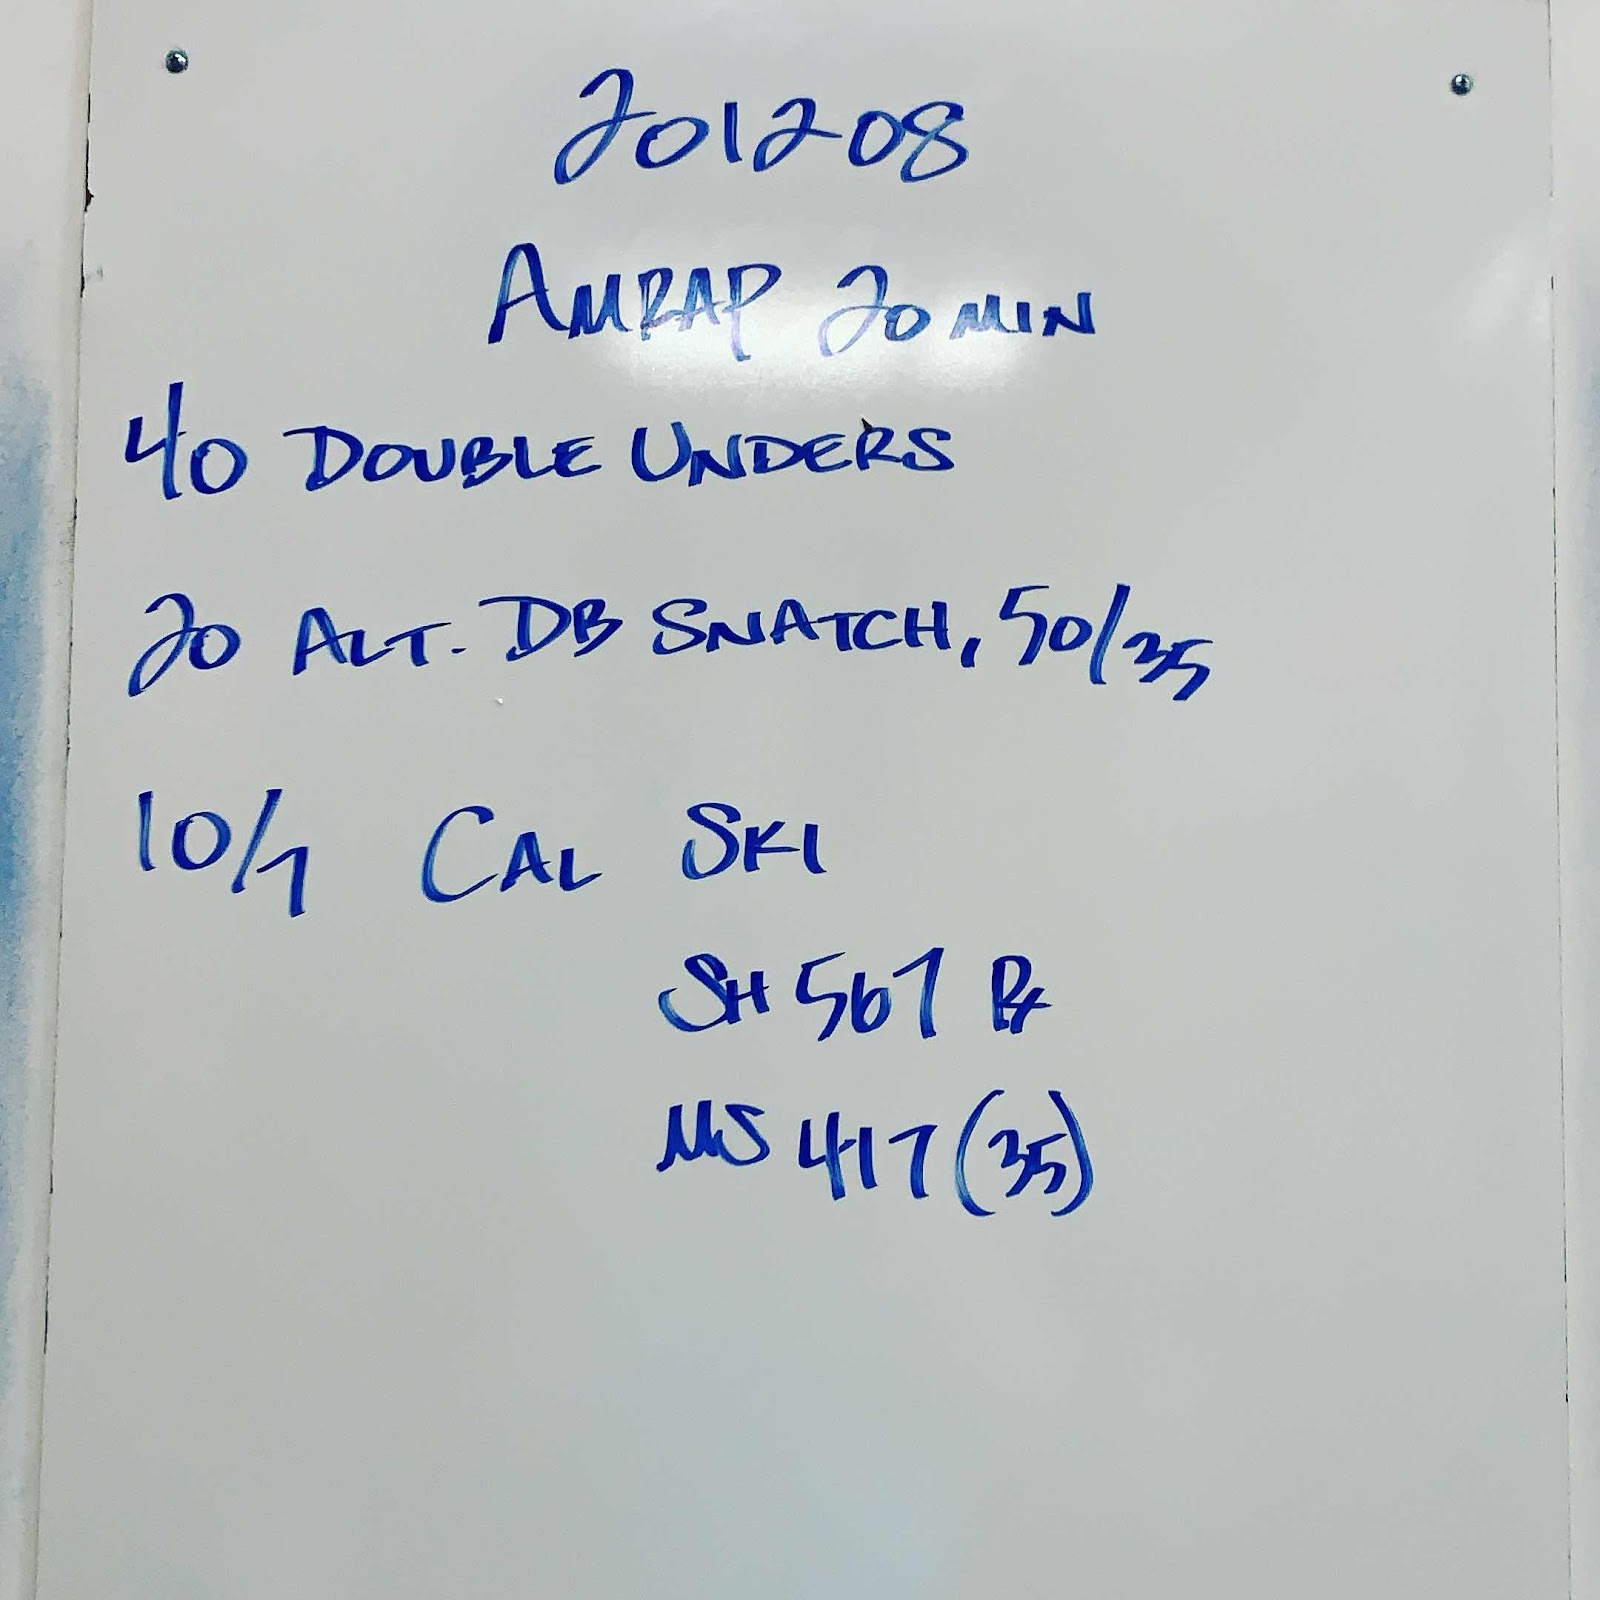 201208
AMRAP 20 MIN
40 DOUBLE UNDERS
20 ALT. DB SNATCH, 50/35
10/7 CAL SKI
SH 567 Rx
MS 417 (35)